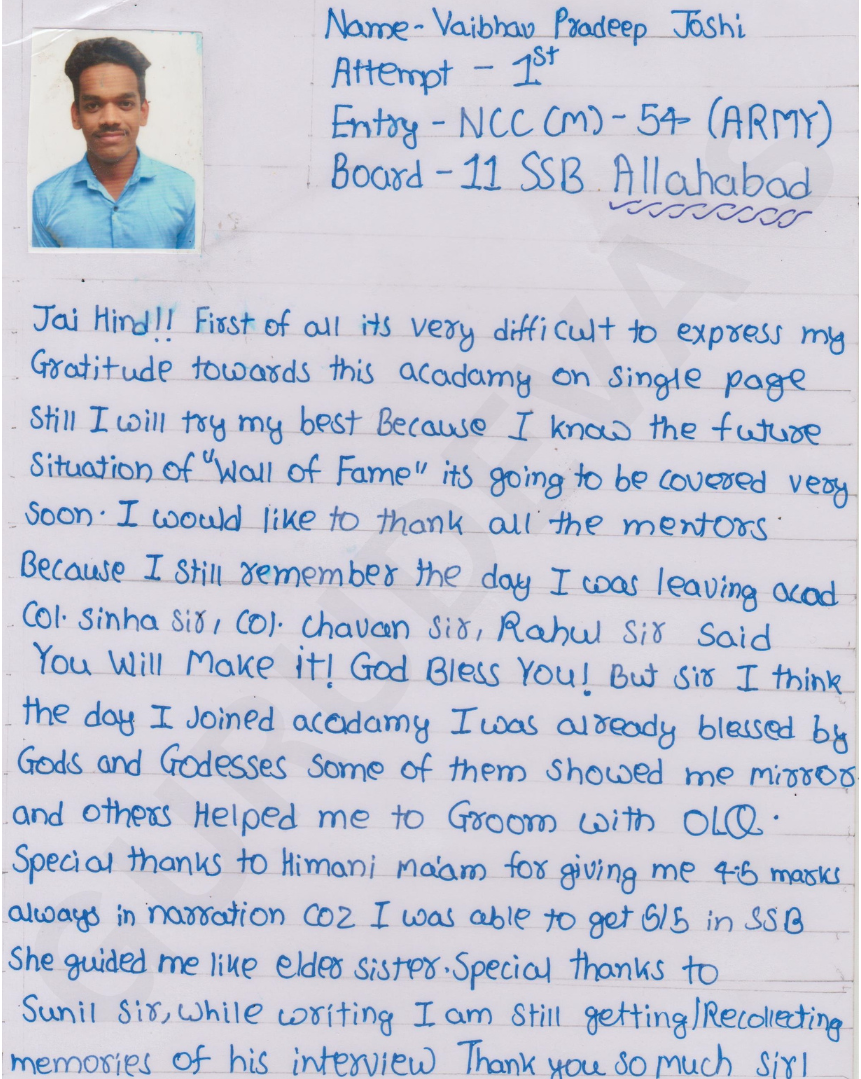 Name - Vaibhav Pradeep Joshi
Attempt - 1st
Entry - NCC (M) - 54 (ARMY)
Board - 11 SSB Allahabad
Jai Hind!! First of all its very difficult to express my
Gratitude towards this acadamy on single page
still I will try my best Because I know the future
Situation of "Wall of Fame" its going to be covered very
soon. I would like to thank all the mentors
Because I still remember the day I was leaving acad
Col. Sinha sir, Col. Chavan sir, Rahul sir said
You Will Make it! God Bless You! But sir I think
the day I Joined acadamy I was already blessed by
Gods and Godesses some of them showed me mirror
and others Helped me to Groom with OLQ.
Special thanks to Himani ma'am for giving me 4.5 marks
always in narration coz I was able to get 5/5 in SSB
She guided me like elder sister. Special thanks to
Sunil sir, while writing I am still getting/Recollecting
memories of his interview Thank you so much sir!
GURUDEVAS